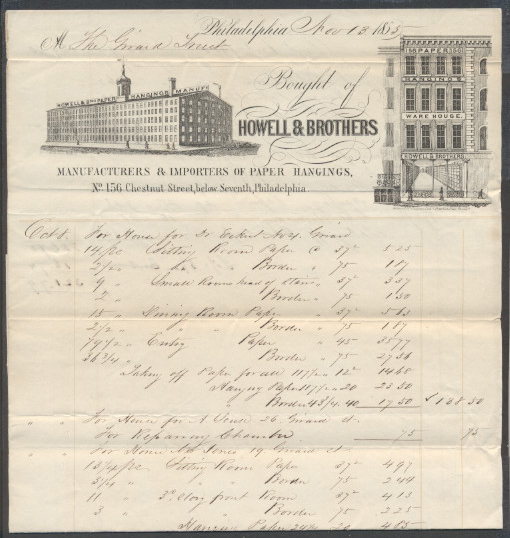 Philadelphia Nov 13 1855
M The Girard Trust
Bought of
HOWELL & BROTHERS
HOWELL & BRO PAPER HANGINGS MANUFY
156 PAPER 156
HANGINGS
WARE HOUSE.
HOWELL & BROTHERS.
MANUFACTURERS & IMPORTERS OF PAPER HANGINGS,
No. 156 Chestnut Street, below Seventh, Philadelphia.
Oct 1 For House for Dr Eckert No 4 Girard
14 pc Sitting Room Paper @ 37½ 5 25
2½ " do " Border " 75 1 87
9 " Small Room head of Stairs " 37½ 3 37
2 " Border " 75 1 50
15 " Dining Room Paper " 37½ 5 63
2½ " " Border " 75 1 87
79½ " Entry Paper " 45 35 77
36¾ " Border " 75 27 56
Taking off Paper for all 117½ " 12½ 14 68
Hanging Paper 117½ " 20 23 50
" Border 43¾ 40 17 50 $138 50
" " For House for 26 Girard st.
For Repairing Chamber 75 75
" " For House Jones 19 Girard st
13¼ pc Sitting Room Paper 37½ 4 97
3¼ " " Border 75 2 44
11 " 3d story front Room 37½ 4 13
3 " Border 75 2 25
Hanging Paper 24¼ 20 4 85